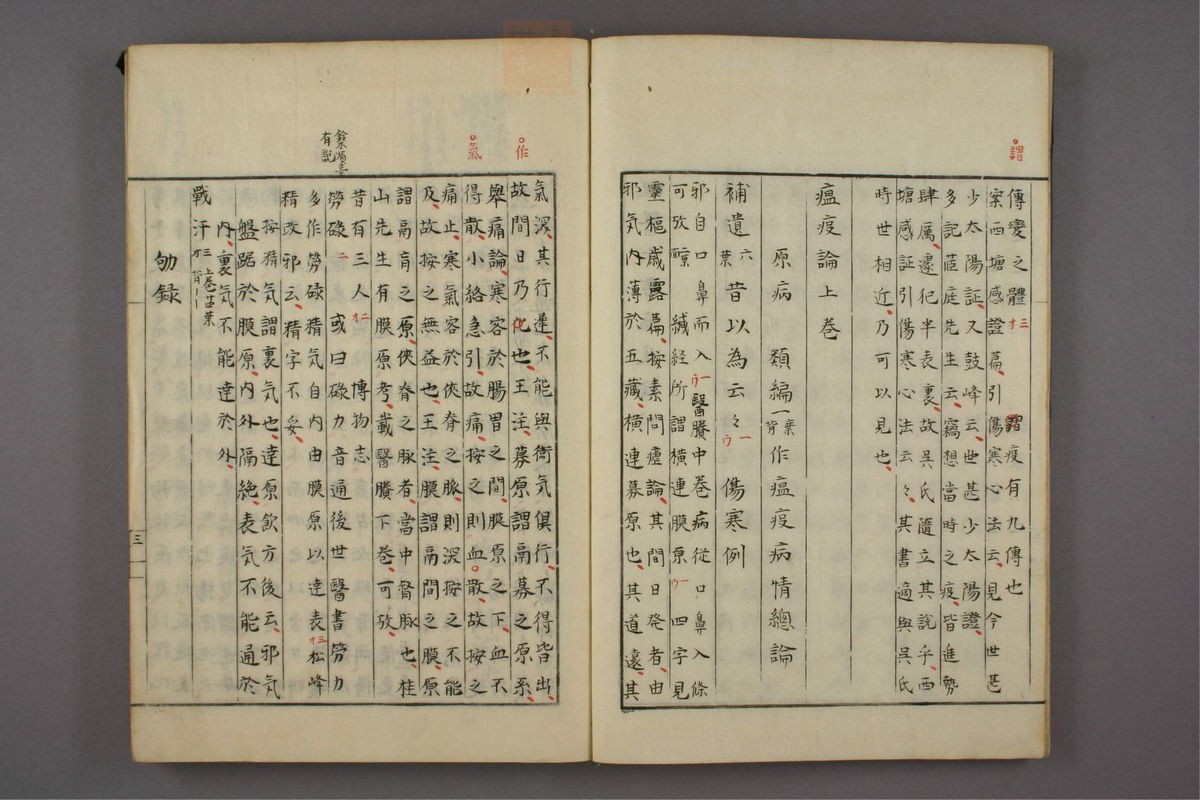 謂
傳變之體 三才 謂疫有九傳也
案西塘感證篇引傷寒心法云見今世甚
少太陽証又鼓峰云世甚少太陽證
多記茝庭先生云竊想當時之疫皆進勢
肆厲遽犯半表裏故吳氏隨立其説乎西
塘感証引傷寒心法云々其書適與吳氏
時世相近乃可以見也
瘟疫論上卷
原病 類編一葉背作瘟疫病情總論
補遺六葉昔以為云々一ウ傷寒例
邪自口鼻而入一ウ醫賸中卷病從口鼻入條
可攷 緘經所謂橫連膜原一ウ四字見
靈樞歲露篇按素問瘧論其間日発者由
邪気內薄於五藏橫連募原也其道遠其
作
氣
氣深其行遲不能與衛気俱行不得皆出
故間日乃化也王注募原謂鬲募之原系
舉痛論寒客於腸胃之間膜原之下血不
得散小絡急引故痛按之則血散故按之
痛止寒氣客於俠脊之脈則深按之不能
及故按之無益也王注膜謂鬲間之膜原
謂鬲肓之原俠脊之脉者當中督脉也桂
山先生有膜原考載醫賸下卷可攷
有説
昔有三人才二博物志
勞碌二或曰碌力音通後世醫書勞力
多作勞碌精気自內由膜原以達表三才松峰
精改邪云精字不妥
按精気謂裏気也達原飲方後云邪気
盤踞於膜原內外隔絶表気不能通於
內裏気不能達於外
戰汗
三
劬録